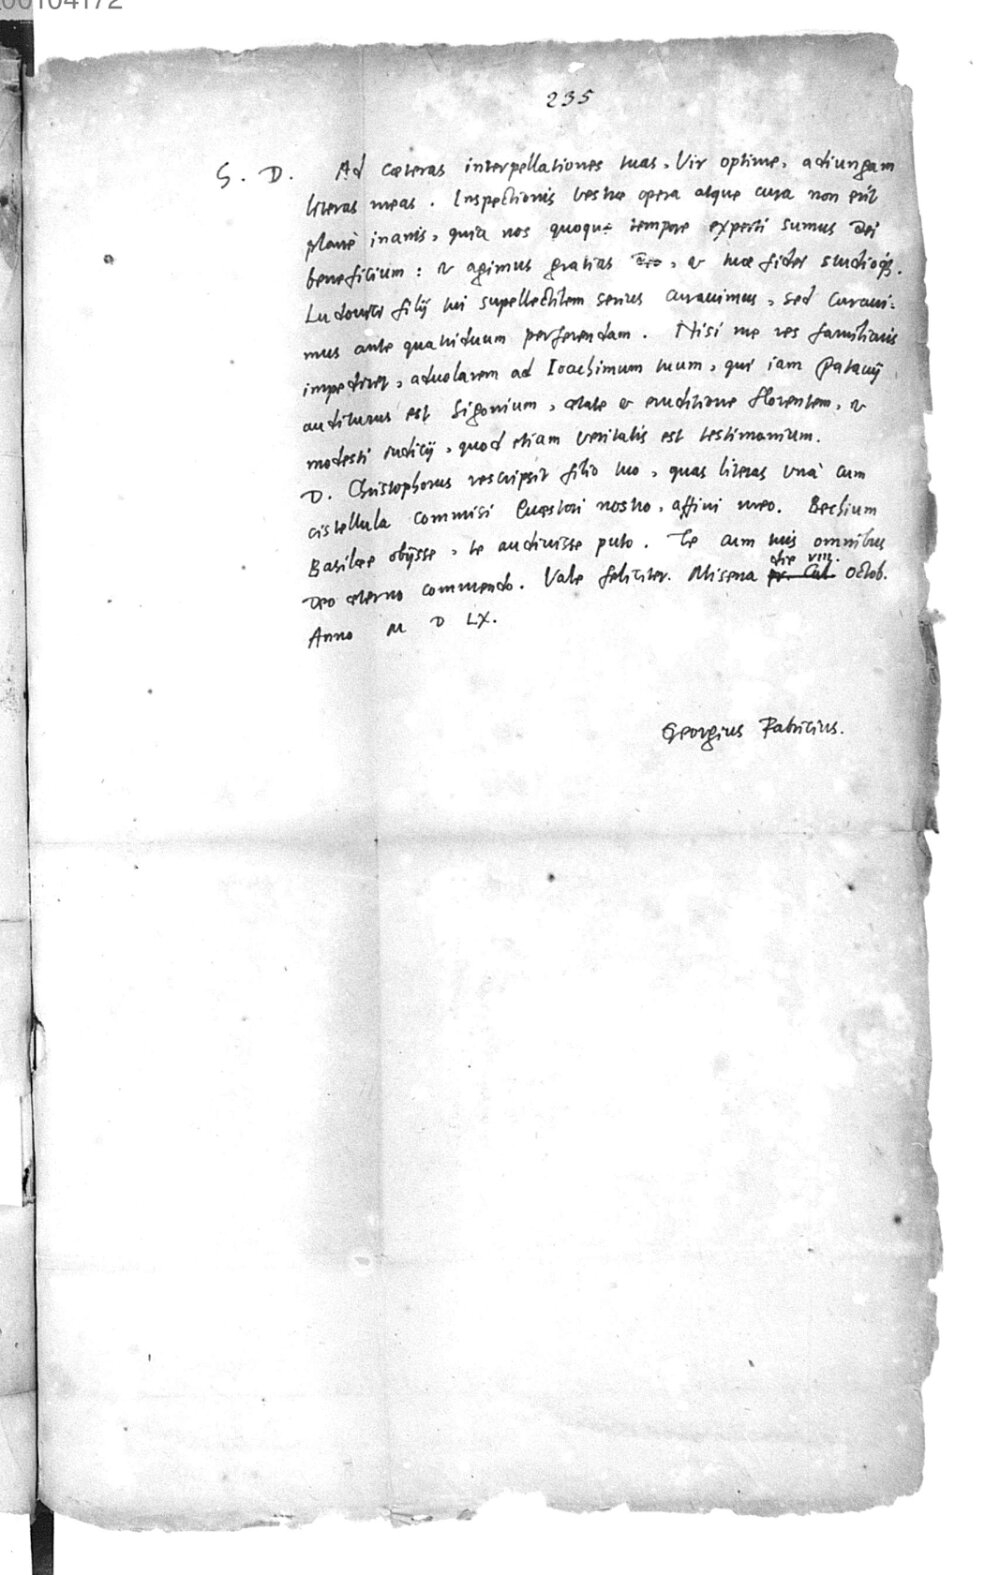 00104172
235
S. D. Ad cæteras interpellationes tuas, Vir optime, adiungam
literas meas. Inspectionis vestræ opera atque cura non erit
planè inanis, quia nos quoque tempore experti sumus Dei
beneficium: & agimus gratias Deo, & tuæ fidei studioq́;.
Ludovici filij tui supellectilem serius curauimus, sed curaui-
mus ante quatriduum perferendam. Nisi me res familiaris
impediret, aduolarem ad Ioachimum tuum, qui iam Patauij
auditurus est Sigonium, ætate & eruditione florentem, &
modesti iudicij, quod etiam veritatis est testimonium.
D. Christophorus rescripsit filio tuo, quas literas vnà cum
cistellula commisi Quæstori nostro, affini meo. Bechium
Basileæ obijsse, te audiuisse puto. Te cum tuis omnibus
Deo æterno commendo. Vale feliciter. Misena pr. Cal. die VIII. Octob.
Anno M D LX.
Georgius Fabricius.